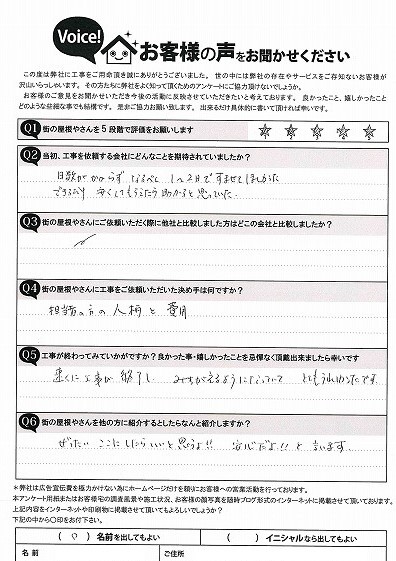 Voice!
お客様の声をお聞かせください
この度は弊社に工事をご用命頂き誠にありがとうございました。世の中には弊社の存在やサービスをご存知ないお客様が
沢山いらっしゃいます。その方たちに弊社をよく知って頂くためのアンケートにご協力頂けないでしょうか。
お客様のご意見をお聞かせいただき今後の活動に反映させていただきたいと考えております。良かったこと、嬉しかったこと
どのような些細な事でも結構です。是非ご協力お願い致します。出来るだけ具体的に書いて頂ければ幸いです。
Q1 街の屋根やさんを5段階で評価をお願いします
Q2 当初、工事を依頼する会社にどんなことを期待されていましたか?
日数がかからず なるべく 1〜2日ですませてほしかった
できるだけ 安くしてもらえたら助かると思っていた。
Q3 街の屋根やさんにご依頼いただく際に他社と比較しました方はどこの会社と比較しましたか?
Q4 街の屋根やさんに工事をご依頼いただいた決め手は何ですか?
担当の方の人柄と費用
Q5 工事が終わってみていかがですか?良かった事・嬉しかったことを忌憚なく頂戴出来ましたら幸いです
速くに工事が終了し みちがえるようになっていて とてもうれしかったです。
Q6 街の屋根やさんを他の方に紹介するとしたらなんと紹介しますか?
ぜったい ここにしたらいいと思うよ!! 安心だよ!!と言います
*弊社は広告宣伝費を極力かけない為にホームページだけを頼りにお客様への営業活動を行っております。
本アンケート用紙またはお客様宅の調査風景や施工状況、お客様の顔写真を随時ブログ形式のインターネットに掲載させて頂いております。
上記内容をインターネットや印刷物に掲載させて頂いてもよろしいでしょうか?
下記の中から〇印をお付下さい。
( 〇 ) 名前を出してもよい ( ) イニシャルなら出してもよい
名前 ご住所